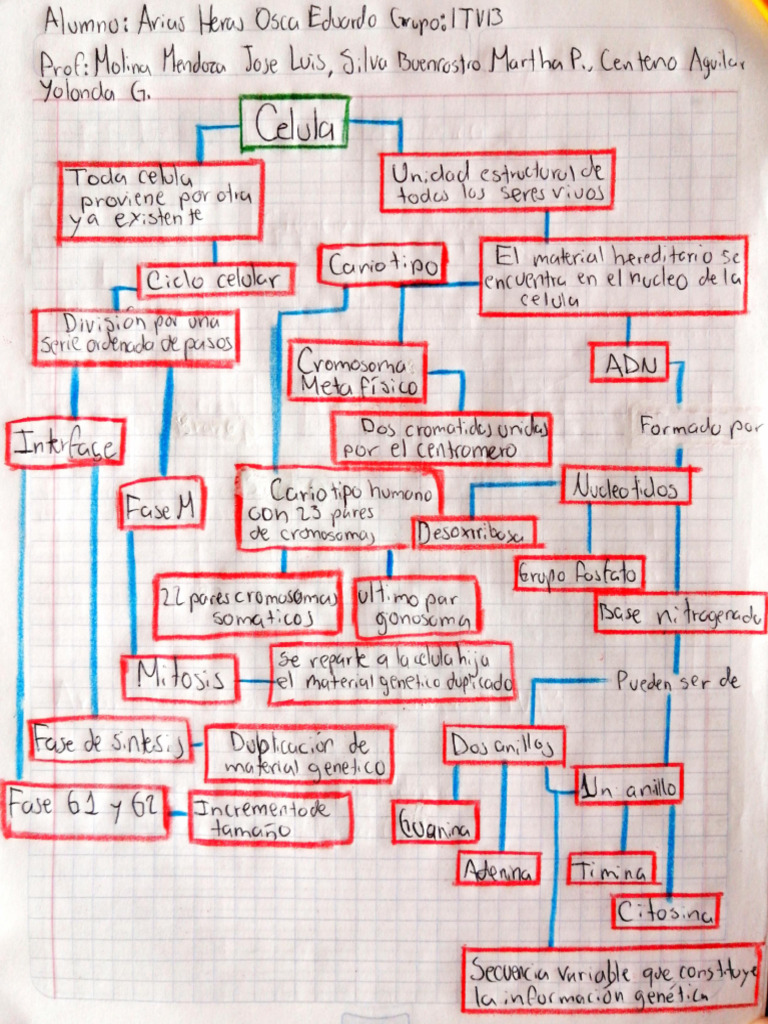 Alumno: Arias Heras Osca Eduardo Grupo: 1TV13
Prof: Molina Mendoza Jose Luis, Silva Buenrostro Martha P., Centeno Aguilar
Yolonda G.
Celula
Toda celula
proviene por otra
ya existente
Unidad estructural de
todos los seres vivos
Ciclo celular
Cariotipo
El material hereditario se
encuentra en el nucleo de la
celula
División por una
serie ordenada de pasos
Cromosoma
Metafísico
ADN
Dos cromatidas unidas
por el centromero
Formado por
Interfase
Fase M
Cariotipo humano
con 23 pares
de cromosomas
Nucleotidos
Desoxiribosa
Grupo fosfato
Base nitrogenada
22 pares cromosomas
somaticos
ultimo par
gonosoma
Mitosis
Se reparte a la celula hija
el material genetico duplicado
Pueden ser de
Fase de sintesis
Duplicación de
material genetico
Dos anillos
Un anillo
Fase G1 y G2
Incremento de
tamaño
Guanina
Adenina
Timina
Citosina
Secuencia variable que constituye
la información genética